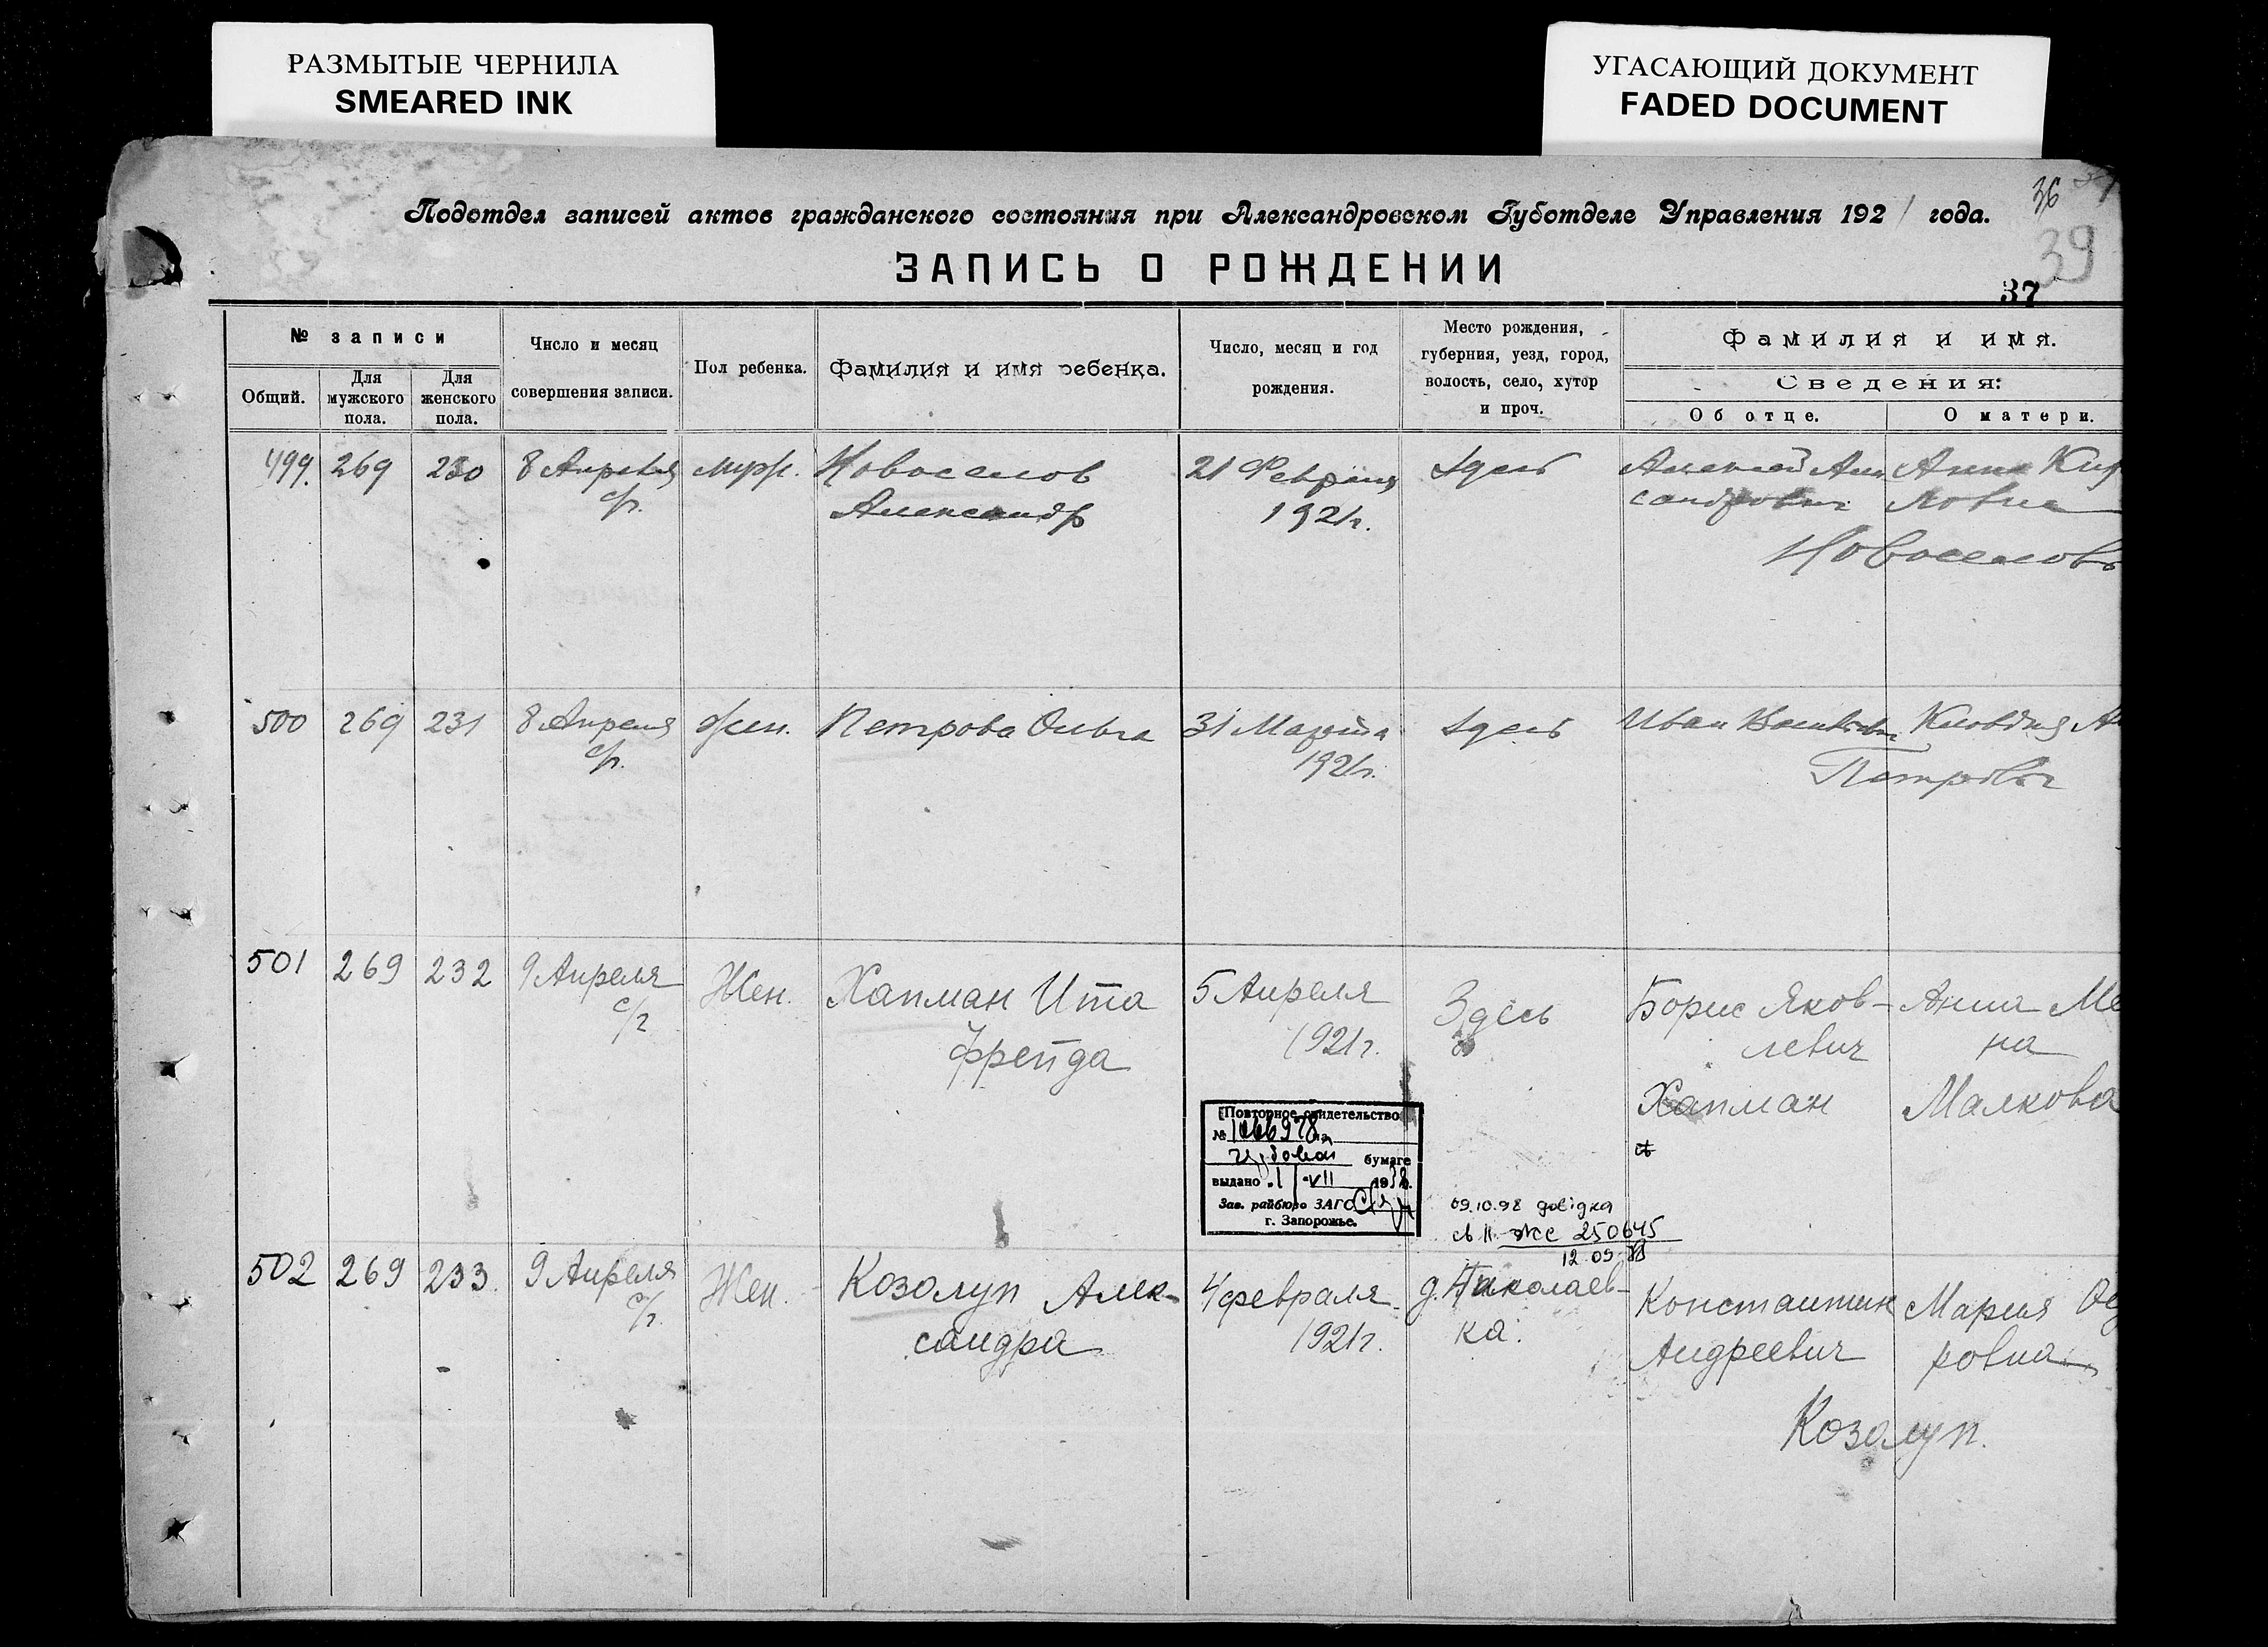 РАЗМЫТЫЕ ЧЕРНИЛА
SMEARED INK
УГАСАЮЩИЙ ДОКУМЕНТ
FADED DOCUMENT
36
Подотдел записей актов гражданского состояния при Александровском Губотделе Управления 1921 года.
39
ЗАПИСЬ О РОЖДЕНИИ
37
№ записи
Общий.
Для мужского пола.
Для женского пола.
Число и месяц совершения записи.
Пол ребенка.
Фамилия и имя ребенка.
Число, месяц и год рождения.
Место рождения, губерния, уезд, город, волость, село, хутор и проч.
Фамилия и имя.
Сведения:
Об отце.
О матери.
499. 269 230 8 Апреля муж. Новоселов 21 Февраля Здесь Алексей Алек Анна Кир
с/г. Александр 1921г. сандрович ловна
Новоселовы
500 269 231 8 Апреля жен. Петрова Ольга 31 Марта Здесь Иван Клавдия
с/г. 1921г. Петровы
501 269 232 9 Апреля Жен. Хапман Ита 5 Апреля Здесь Борис Яков- Анна Ме
с/г Фрейда 1921г. левич на
Хапман Малкова
Повторное свидетельство
№ 1066978 на
гербовой бумаге
выдано 1/VII 1938.
Зав. райбюро ЗАГС
г. Запорожье.
09.10.98 довідка
св II-жс 250645
12.09.
502 269 233. 9 Апреля Жен. Козолуп Алек- 4 февраля д. Николаев- Константин Мария
с/г. сандра 1921г. ка. Андреевич ровна
Козолуп.